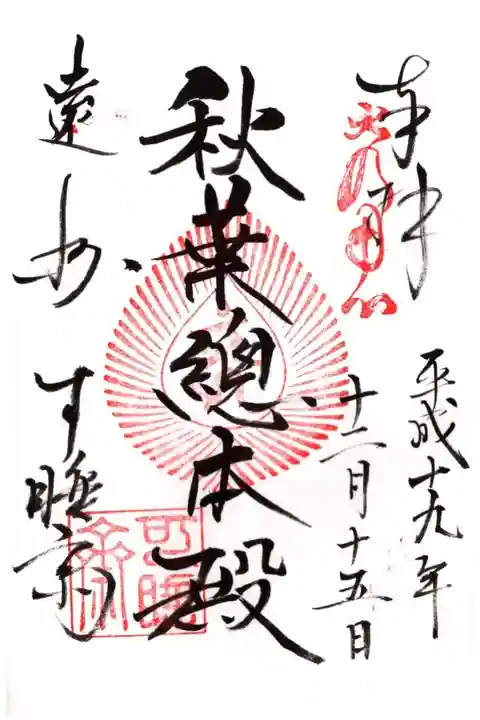 奉拝
平成十九年
十二月十五日
秋葉總本殿
遠州 可睡斎
可睡斎